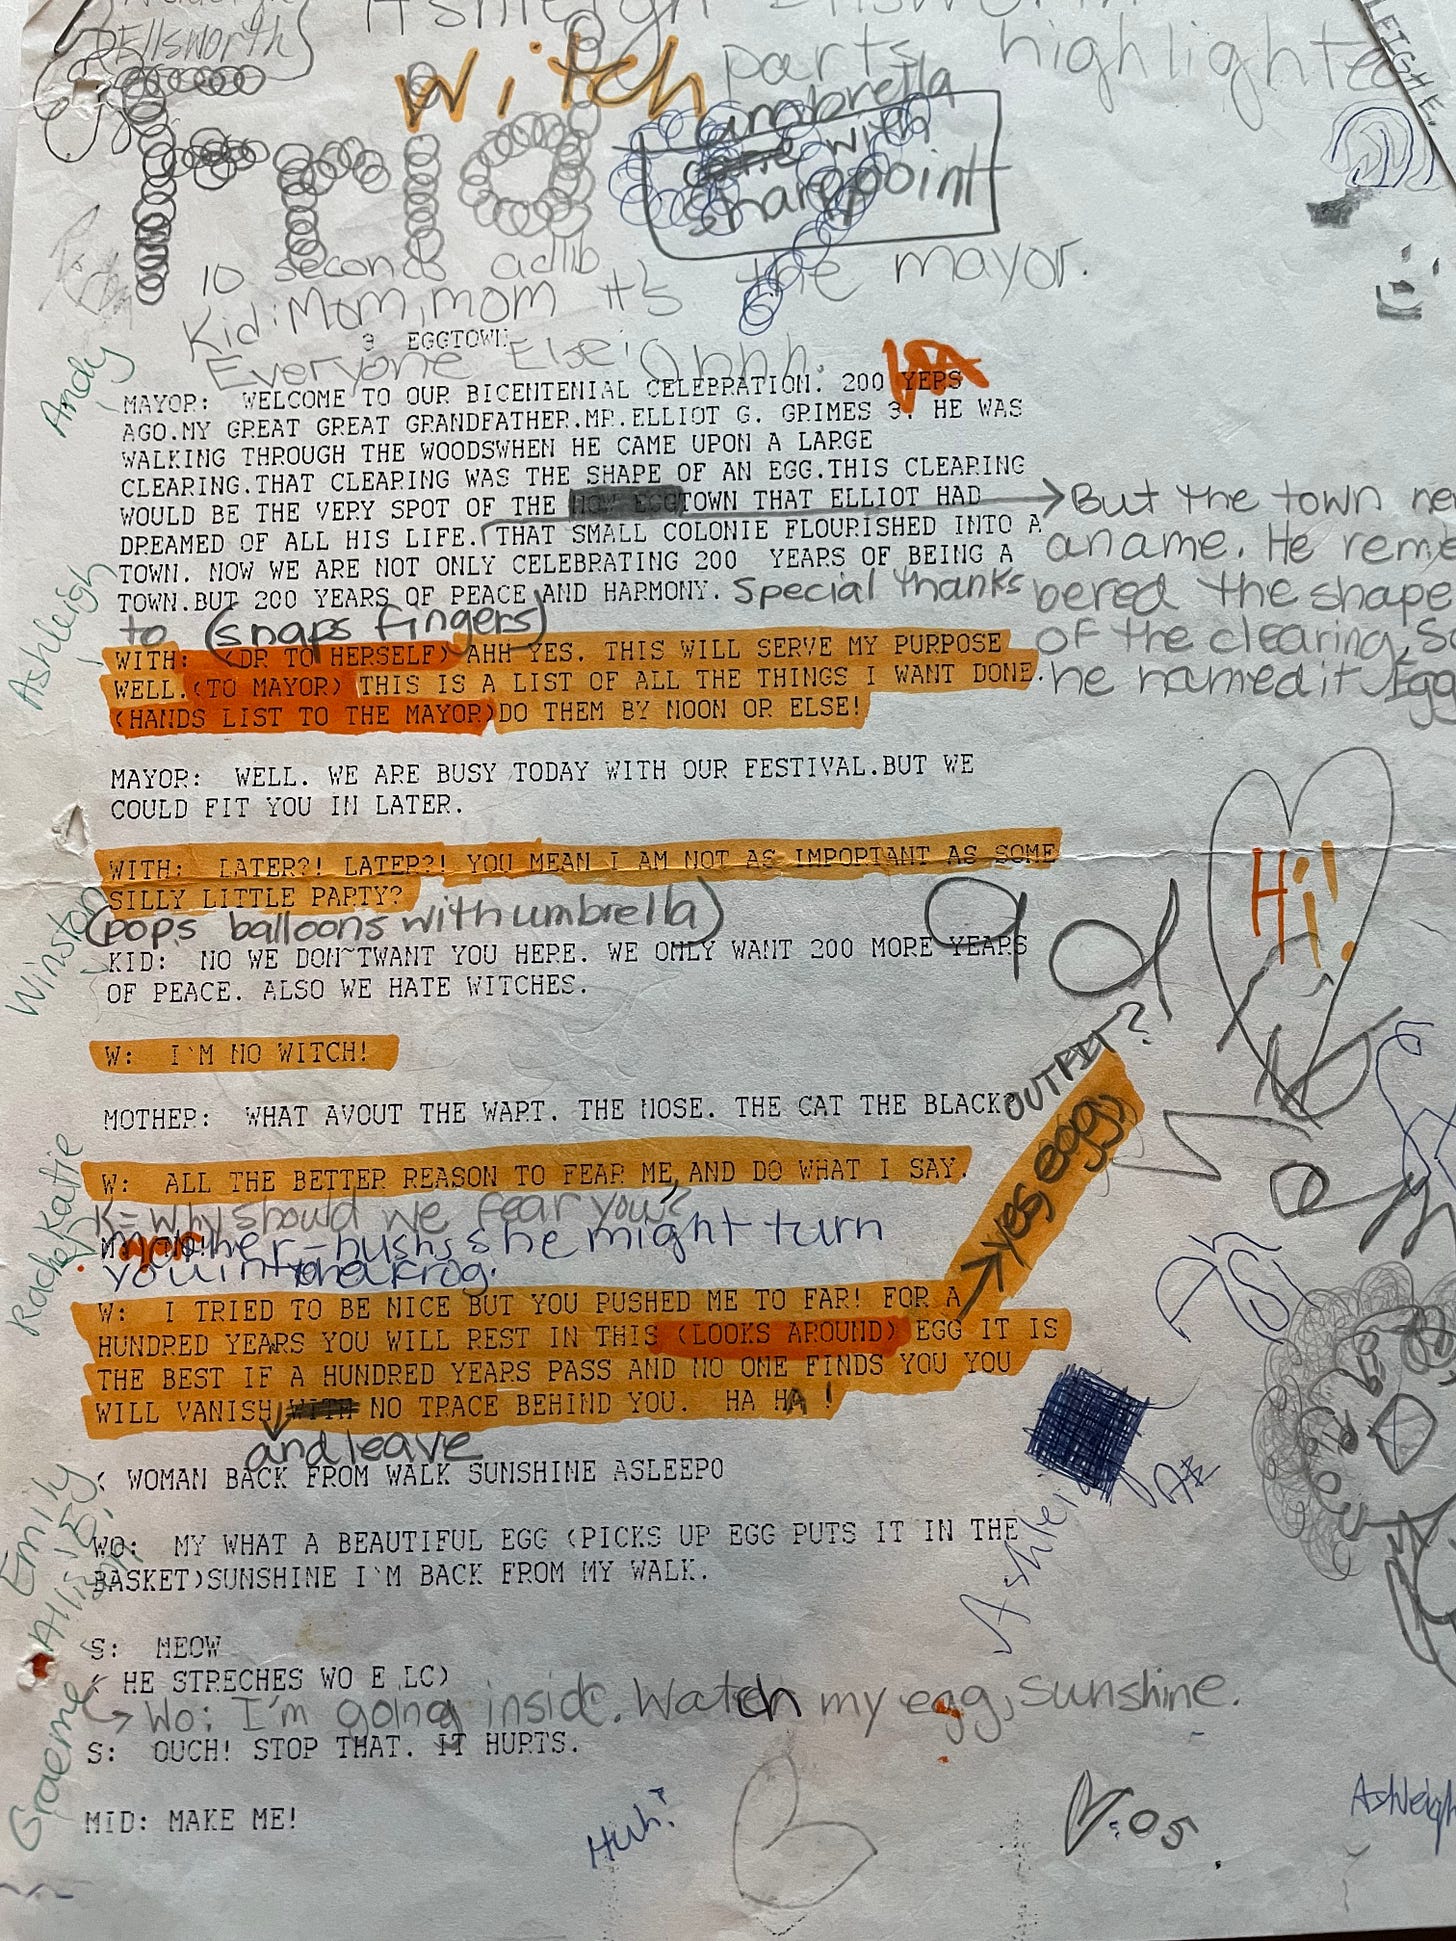 Ellsworth
Ashleigh Ellsworth
witch parts highlighted
umbrella
with
sharp point
10 seconds adlib
Kid: Mom, mom #5 the mayor.
3 EGGTOWN
Everyone Else: Ohhh.
Andy
MAYOR: WELCOME TO OUR BICENTENIAL CELEBRATION. 200 YERS
AGO.MY GREAT GREAT GRANDFATHER.MR.ELLIOT G. GRIMES 3. HE WAS
WALKING THROUGH THE WOODSWHEN HE CAME UPON A LARGE
CLEARING.THAT CLEARING WAS THE SHAPE OF AN EGG.THIS CLEARING
WOULD BE THE VERY SPOT OF THE NOW EGGTOWN THAT ELLIOT HAD
DREAMED OF ALL HIS LIFE. THAT SMALL COLONIE FLOURISHED INTO A
TOWN. NOW WE ARE NOT ONLY CELEBRATING 200 YEARS OF BEING A
TOWN.BUT 200 YEARS OF PEACE AND HARMONY. Special thanks
to (snaps fingers)
But the town ne
a name. He rem
bered the shape
of the clearing, So
he named it Egg
Ashleigh
WITH: (DR TO HERSELF) AHH YES. THIS WILL SERVE MY PURPOSE
WELL.(TO MAYOR) THIS IS A LIST OF ALL THE THINGS I WANT DONE.
(HANDS LIST TO THE MAYOR)DO THEM BY NOON OR ELSE!
MAYOR: WELL. WE ARE BUSY TODAY WITH OUR FESTIVAL.BUT WE
COULD FIT YOU IN LATER.
WITH: LATER?! LATER?! YOU MEAN I AM NOT AS IMPORTANT AS SOME
SILLY LITTLE PARTY?
(pops balloons with umbrella)
Hi!
Winston
KID: NO WE DON~TWANT YOU HERE. WE ONLY WANT 200 MORE YEARS
OF PEACE. ALSO WE HATE WITCHES.
W: I'M NO WITCH!
MOTHER: WHAT AVOUT THE WART. THE NOSE. THE CAT THE BLACK OUTFIT?
Katie
Rachel
W: ALL THE BETTER REASON TO FEAR ME, AND DO WHAT I SAY.
K= Why should we fear you?
mother - hush, she might turn
you into a frog.
W: I TRIED TO BE NICE BUT YOU PUSHED ME TO FAR! FOR A
yes, egg,
HUNDRED YEARS YOU WILL REST IN THIS (LOOKS AROUND) EGG IT IS
THE BEST IF A HUNDRED YEARS PASS AND NO ONE FINDS YOU YOU
WILL VANISH WITH NO TRACE BEHIND YOU. HA HA !
and leave
Emily
( WOMAN BACK FROM WALK SUNSHINE ASLEEPO
WO: MY WHAT A BEAUTIFUL EGG (PICKS UP EGG PUTS IT IN THE
BASKET)SUNSHINE I'M BACK FROM MY WALK.
Ashleigh
Allison
S: MEOW
( HE STRECHES WO E LC)
Wo: I'm going inside. Watch my egg, sunshine.
Graeme
S: OUCH! STOP THAT. IT HURTS.
MID: MAKE ME!
Huh?
Ashleigh